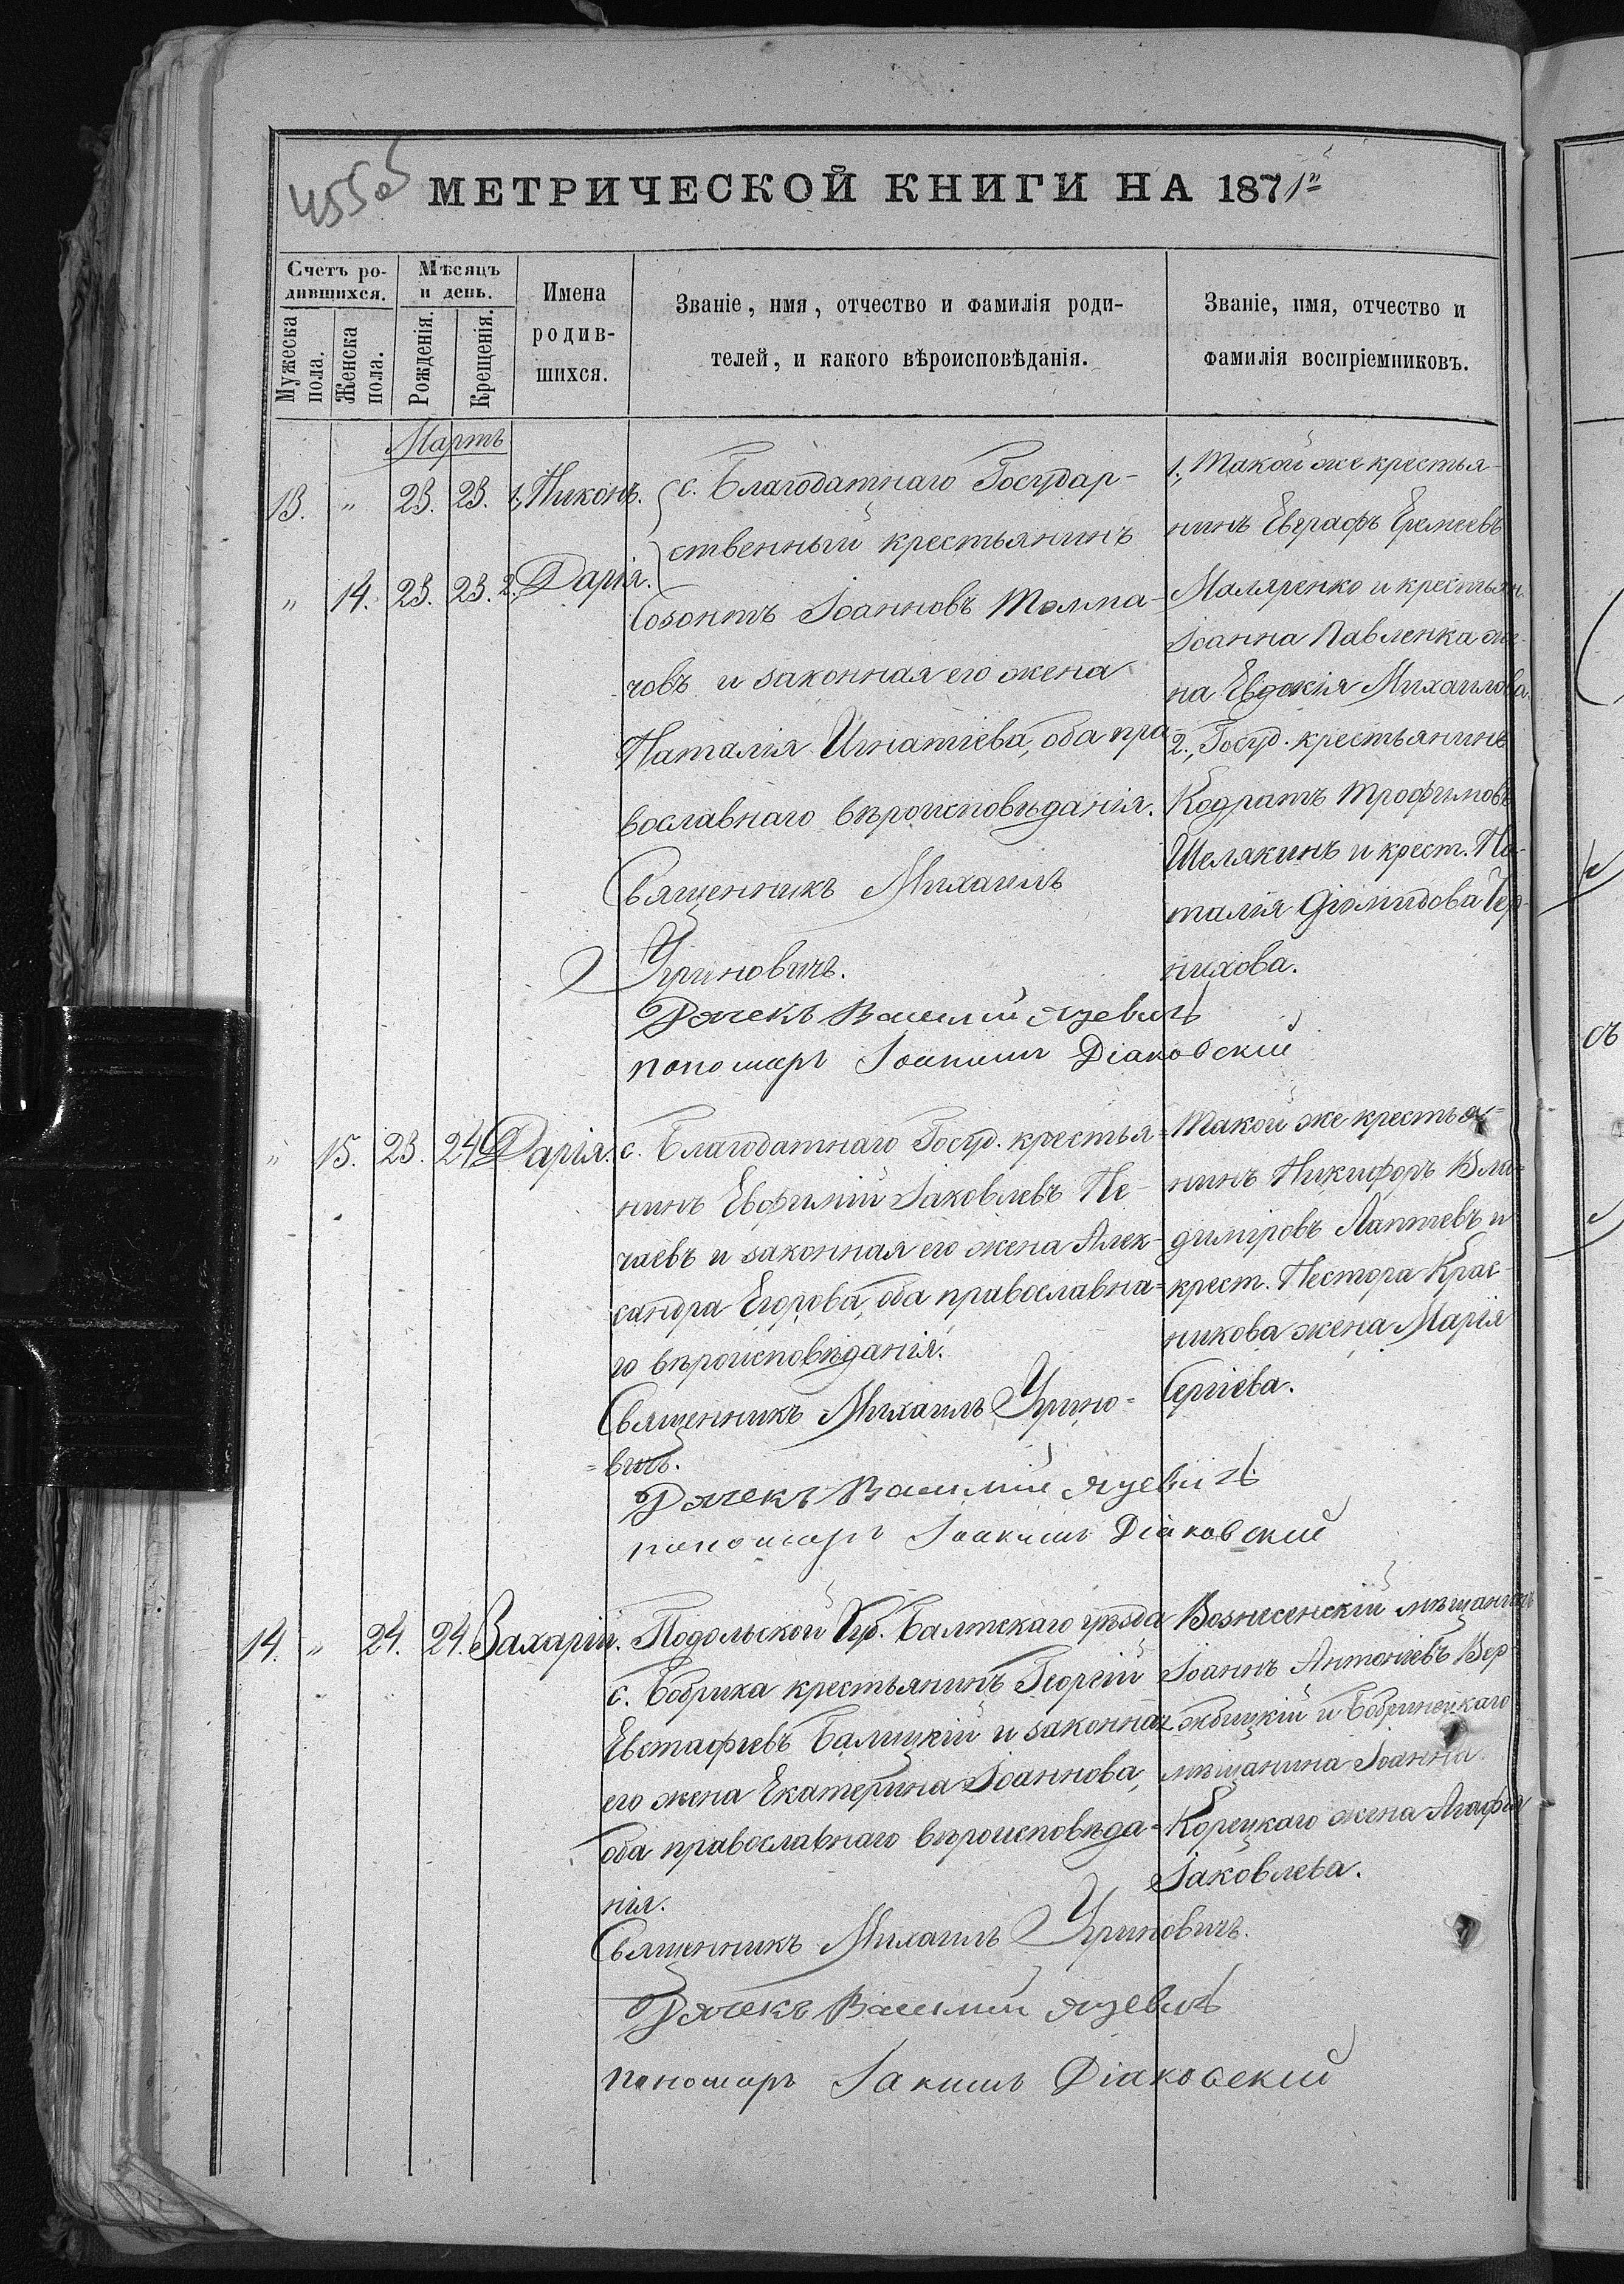 455об
МЕТРИЧЕСКОЙ КНИГИ НА 1871"
Счетъ ро-
дившихся.
Мужеска пола.
Женска пола.
Мѣсяцъ
и день.
Рожденія.
Крещенія.
Имена
родив-
шихся.
Званіе, имя, отчество и фамилія роди-
телей, и какого вѣроисповѣданія.
Званіе, имя, отчество и
фамилія воспріемниковъ.
Мартъ
13. " 23. 23. 1, Никонъ.
" 14. 23. 23. 2, Дарія.
с. Благодатнаго Государ-
ственный крестьянинъ
Созонтъ Іоанновъ Толма-
човъ и законная его жена
Наталія Игнатіева, оба пра
вославнаго вѣроисповѣданія.
Священникъ Михаилъ
Уриновичъ.
Дячекъ Василій Язевичъ
пономарь Іоакимъ Діаковскій
1, Такой же крестья-
нинъ Евграфъ Еремеевъ
Маляренко и крестьян.
Іоанна Павленка же-
на Евдокія Михаилова.
2, Госуд. крестьянинъ
Кодратъ Трофимовъ
Шелякинъ и крест. На-
талія Діомидова Чер-
нихова.
" 15. 23. 24. Дарія.
с. Благодатнаго Госуд. крестья-
нинъ Евфимій Іаковлевъ Не-
чаевъ и законная его жена Алек-
сандра Егорова, оба православна-
го вѣроисповѣданія.
Священникъ Михаилъ Урино-
=вичъ.
Дячекъ Василій Язевичъ
пономарь Іоакимъ Діаковскій
Такой же крестья=
нинъ Никифоръ Вла-
диміровъ Лаптевъ и
крест. Нестора Крас-
никова жена Марія
Сергіева.
14. " 24. 24. Захарій.
Подольской Губ. Балтскаго уѣзда
с. Бобрика крестьянинъ Георгій
Евстафіевъ Балицкій и законная
его жена Екатерина Іоаннова,
оба православнаго вѣроисповѣда-
нія.
Священникъ Михаилъ Уриновичъ.
Дячекъ Василій Язевичъ
пономарь Іакимъ Діаковскій
Вознесенскій мѣщанинъ
Іоаннъ Антоніевъ Вер-
жбицкій и Бобринецкаго
мѣщанина Іоанна
Корецкаго жена Агафія
Іаковлева.